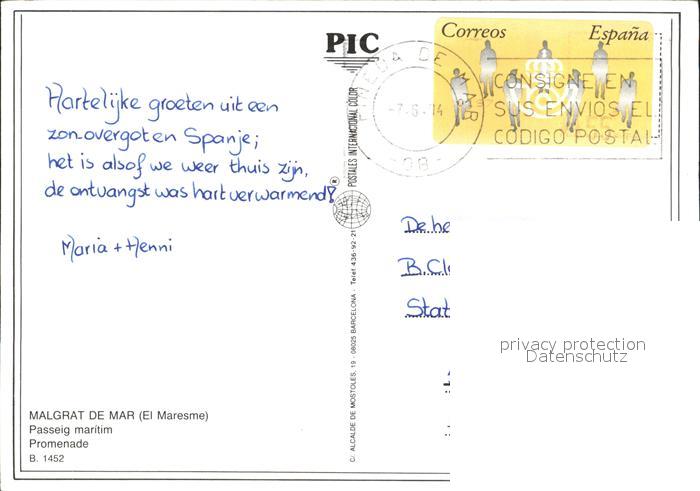 PIC
Correos España
PINEDA DE MAR
-7.6.94
-08-
CONSIGNE EN
SUS ENVIOS EL
CODIGO POSTAL
Hartelijke groeten uit een
zon-overgoten Spanje;
het is alsof we weer thuis zijn,
de ontvangst was hartverwarmend!
Maria + Henni
POSTALES INTERNACIONAL COLOR
®
C/. ALCALDE DE MOSTOLES, 19 - 08025 BARCELONA - Telef. 436-92-21
De he
B. Cl
Stat
privacy protection
Datenschutz
MALGRAT DE MAR (El Maresme)
Passeig marítim
Promenade
B. 1452